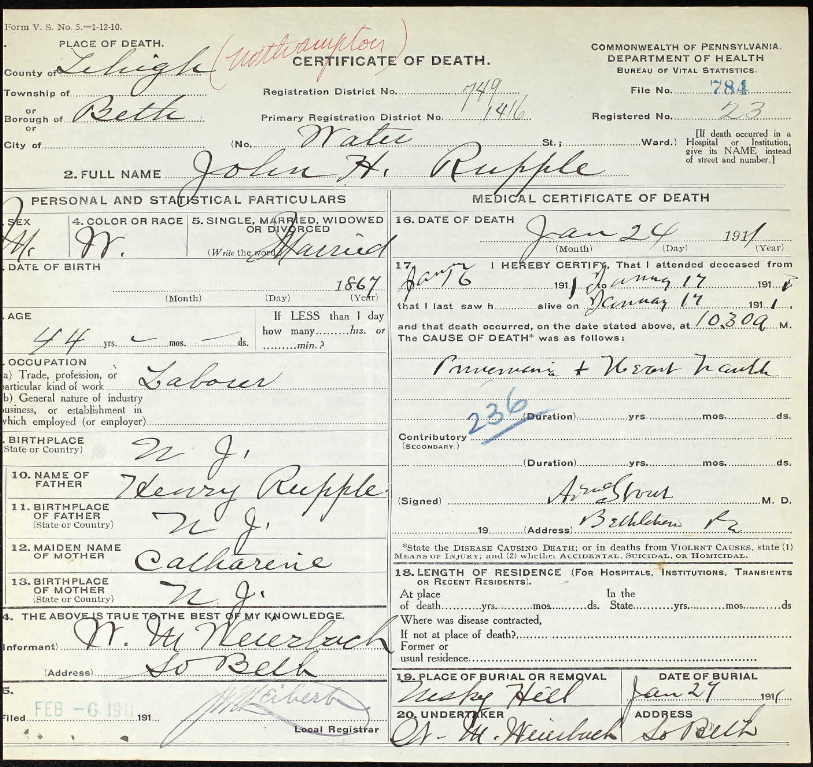 Form V. S. No. 5.—1-12-10.
PLACE OF DEATH.
County of Lehigh (Northampton)
Township of
or
Borough of Beth
or
City of
CERTIFICATE OF DEATH.
Registration District No. 749
Primary Registration District No. 1416
(No. Water St.; Ward.)
COMMONWEALTH OF PENNSYLVANIA.
DEPARTMENT OF HEALTH
BUREAU OF VITAL STATISTICS.
File No. 784
Registered No. 23
[If death occurred in a
Hospital or Institution,
give its NAME instead
of street and number.]
2. FULL NAME John H. Rupple
PERSONAL AND STATISTICAL PARTICULARS
SEX M.
4. COLOR OR RACE W.
5. SINGLE, MARRIED, WIDOWED
OR DIVORCED
(Write the word) Married
DATE OF BIRTH
1867
(Month) (Day) (Year)
AGE
44 yrs. mos. ds.
If LESS than 1 day
how many hrs. or
min.?
OCCUPATION
a) Trade, profession, or
particular kind of work Laborer
b) General nature of industry
business, or establishment in
which employed (or employer)
BIRTHPLACE
State or Country) N J.
10. NAME OF
FATHER Henry Rupple
11. BIRTHPLACE
OF FATHER
(State or Country) N J.
12. MAIDEN NAME
OF MOTHER Catharine
13. BIRTHPLACE
OF MOTHER
(State or Country) N J.
4. THE ABOVE IS TRUE TO THE BEST OF MY KNOWLEDGE.
Informant) W. M Weierbach
(Address) So Beth
5.
Filed FEB -6 1911 191
Local Registrar
MEDICAL CERTIFICATE OF DEATH
16. DATE OF DEATH
Jan 24 1911
(Month) (Day) (Year)
17. I HEREBY CERTIFY, That I attended deceased from
Jany 16 1911 January 17 191
that I last saw h alive on January 17 191 1
and that death occurred, on the date stated above, at 1030a M.
The CAUSE OF DEATH* was as follows:
Pneumonia + Heart
236
(Duration) yrs. mos. ds.
Contributory
(SECONDARY.)
(Duration) yrs. mos. ds.
(Signed) M. D.
19 (Address) Bethlehem Pa
*State the DISEASE CAUSING DEATH; or in deaths from VIOLENT CAUSES, state (1)
MEANS OF INJURY; and (2) whether ACCIDENTAL, SUICIDAL, OR HOMICIDAL.
18. LENGTH OF RESIDENCE (FOR HOSPITALS, INSTITUTIONS, TRANSIENTS
OR RECENT RESIDENTS).
At place In the
of death yrs. mos. ds. State yrs. mos. ds
Where was disease contracted,
If not at place of death?
Former or
usual residence
19. PLACE OF BURIAL OR REMOVAL
Nisky Hill
DATE OF BURIAL
Jan 27 1911
20. UNDERTAKER
W. M. Weierbach
ADDRESS
So Beth